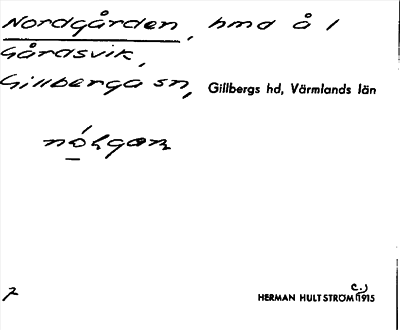 Nordgården, hmd å 1
Gårdsvik,
Gillberga sn, Gillbergs hd, Värmlands län
7
HERMAN HULTSTRÖM (c.) 1915